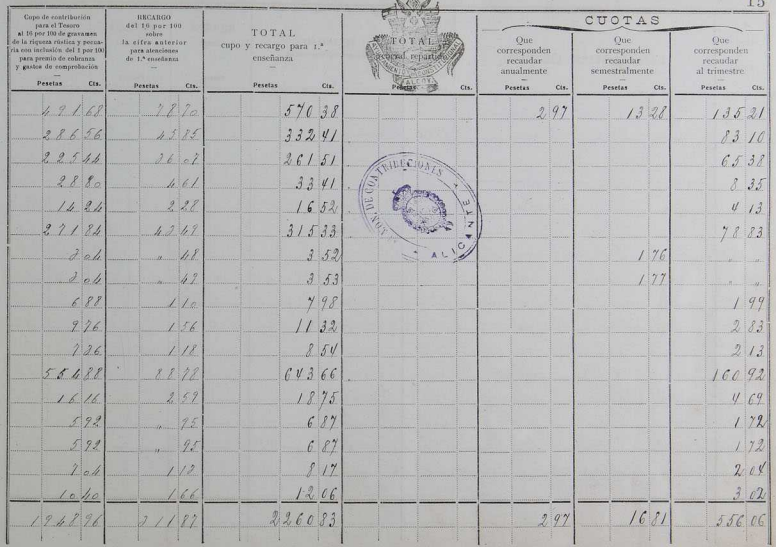 15
Cupo de contribución para el Tesoro al 16 por 100 de gravamen de la riqueza rústica y pecuaria con inclusión del 1 por 100 para premio de cobranza y gastos de comprobación
RECARGO del 16 por 100 sobre la cifra anterior para atenciones de 1.ª enseñanza
TOTAL cupo y recargo para 1.ª enseñanza
TOTAL general repartido
CUOTAS
Que corresponden recaudar anualmente
Que corresponden recaudar semestralmente
Que corresponden recaudar al trimestre
Pesetas Cts. Pesetas Cts. Pesetas Cts. Pesetas Cts. Pesetas Cts. Pesetas Cts. Pesetas Cts.
491 68 78 70 570 38 2 97 13 28 135 21
286 56 45 85 332 41 83 10
225 44 36 07 261 51 65 38
28 80 4 61 33 41 8 35
14 24 2 28 16 52 4 13
271 84 43 49 315 33 78 83
3 04 " 48 3 52 1 76 " "
3 04 " 49 3 53 1 77 " "
6 88 1 10 7 98 1 99
9 76 1 56 11 32 2 83
7 36 1 18 8 54 2 13
554 88 88 78 643 66 160 92
16 16 2 59 18 75 4 69
5 92 " 95 6 87 1 72
5 92 " 95 6 87 1 72
7 04 1 13 8 17 2 04
10 40 1 66 12 06 3 02
1948 96 311 87 2260 83 2 97 16 81 556 06
CONTRIBUCIONES
ALICANTE